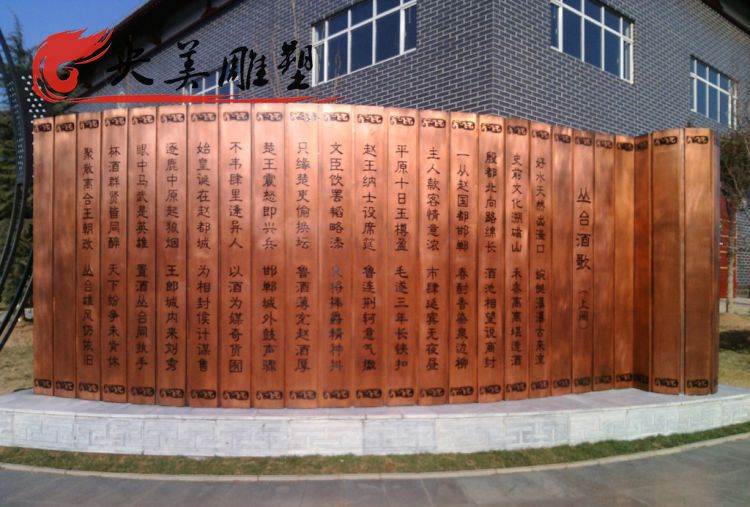 央美雕塑
丛台酒歌（上阕）
好水天然出滏口 蜿蜒瀑瀑古来淳
史前文化溯磁山 禾黍离离堪造酒
殷都北向路绵长 酒池相望说商纣
一从赵国都邯郸 春酎香染泉边柳
主人款客情意浓 市肆延宾无夜昼
平原十日玉樽盈 毛遂三年长铗扣
赵王纳士设席筵 鲁连荆轲意气
文臣饮罢韬略添 良将捧爵精神抖
只缘楚吏偷换坛 鲁酒薄充赵酒厚
楚王震怒即兴兵 邯郸城外鼓声骤
不韦肆里逢异人 以酒为谋奇货囤
始皇诞在赵都城 为相封侯计谋售
逐鹿中原起狼烟 王郎城内来刘秀
眼中马武是英雄 置酒丛台同执手
杯酒群贤皆同醉 天下纷争未肯休
聚散离合王朝改 丛台雄风仍依旧